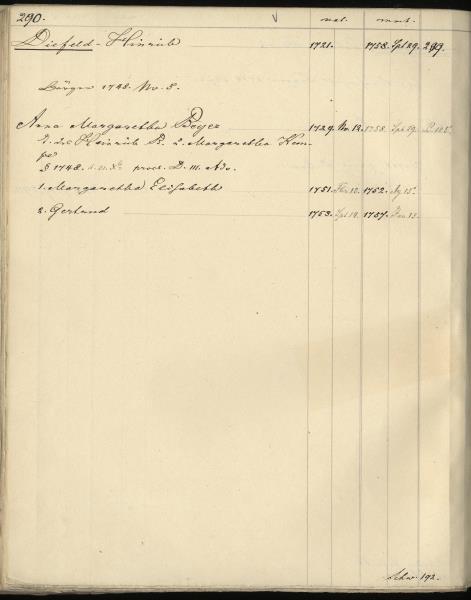 290. nat. mort.
Diefeld - Hinrich 1721. 1758. Spt 29. 299.
Bürger 1748. No. 8.
Anna Margaretha Beyer 1729. No. 12. 1758. Spt 29.
T. des Heinrich B. & Margaretha Kem-
pe
§ 1748. proc. D. III. Adv.
1. Margaretha Elisabeth 1751. 1752. Ag 15.
2. Gertrud 1753. Spt 1757. Jan 13.
Schw. 192.